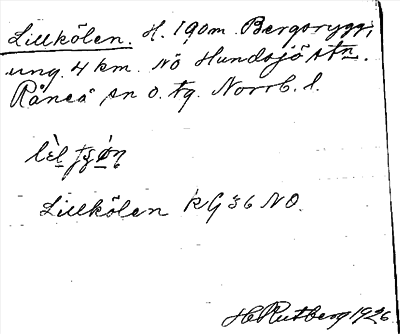 Lillkölen. H. 190m. Bergsrygg,
ung. 4 km. NÖ Hundsjö stn.
Råneå sn o. tg. Norrb. l.
Lillkölen kG 36 NO.
H Rutberg 1926.